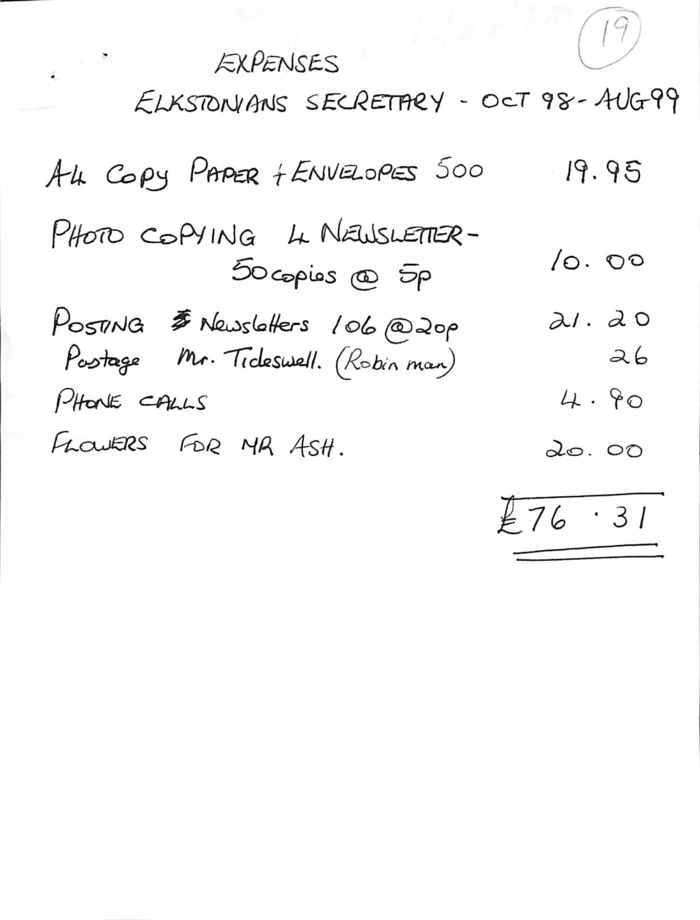 19
EXPENSES
ELKSTONIANS SECRETARY - OCT 98 - AUG 99
A4 COPY PAPER + ENVELOPES 500 19.95
PHOTO COPYING 4 NEWSLETTER -
50 copies @ 5p 10.00
POSTING Newsletters 106 @ 20p 21.20
Postage Mr. Tideswell. (Robin man) 26
PHONE CALLS 4.90
FLOWERS FOR MR ASH. 20.00
£76.31